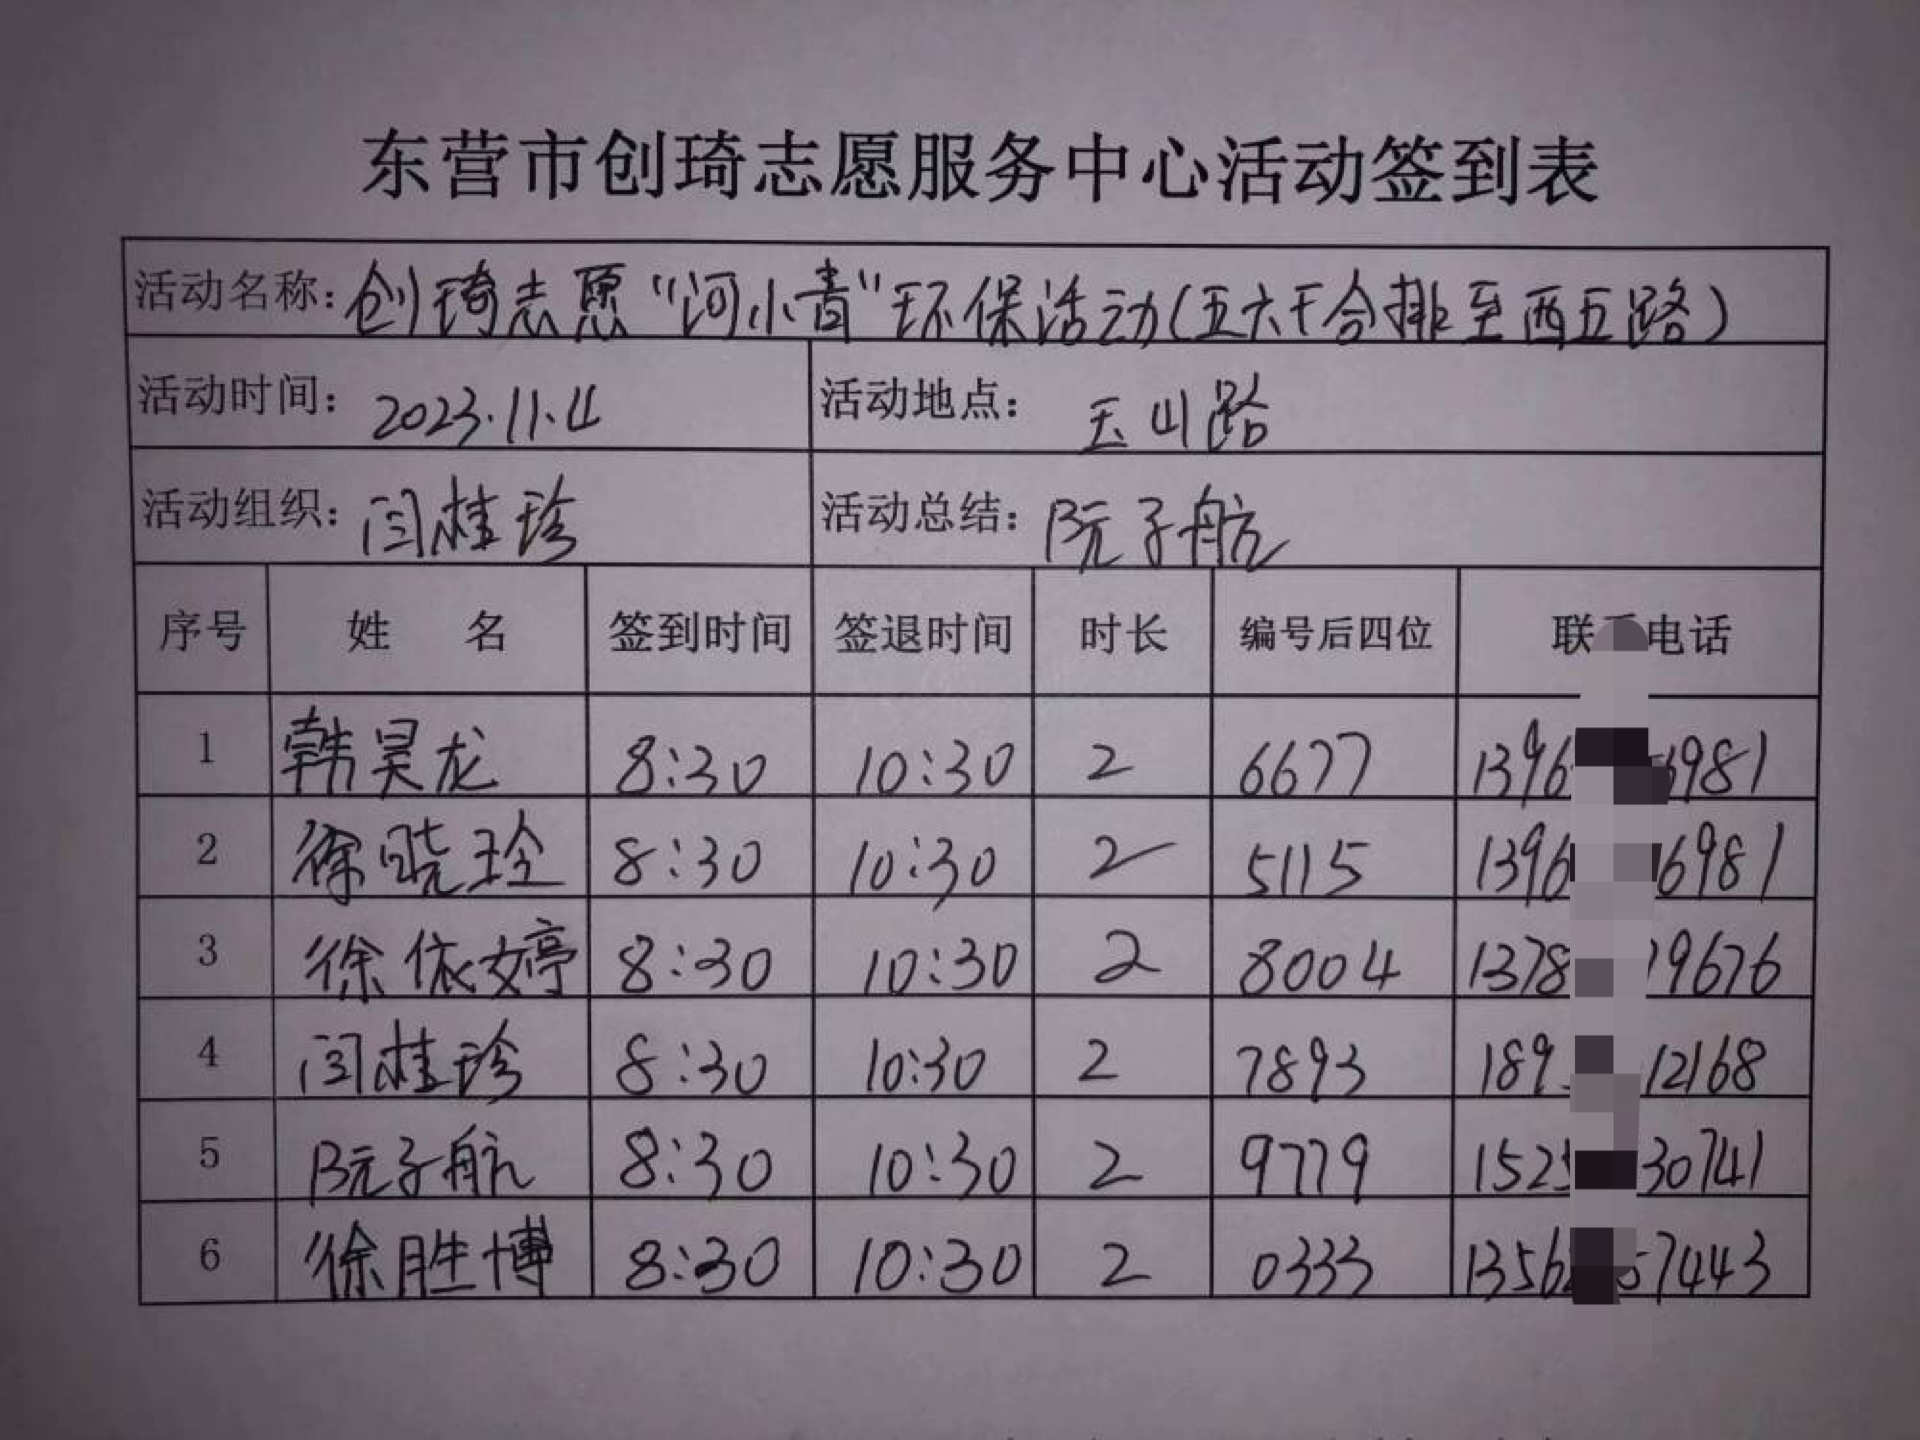 东营市创琦志愿服务中心活动签到表
活动名称：创琦志愿“河小青”环保活动（五六干合排至西五路）
活动时间：2023.11.4 活动地点：玉山路
活动组织：闫桂珍 活动总结：阮子航
序号 姓 名 签到时间 签退时间 时长 编号后四位 联 电话
1 韩昊龙 8:30 10:30 2 6677 1396 6981
2 徐晓玲 8:30 10:30 2 5115 1396 6981
3 徐依婷 8:30 10:30 2 8004 1378 19676
4 闫桂珍 8:30 10:30 2 7893 189 12168
5 阮子航 8:30 10:30 2 9779 152 30741
6 徐胜博 8:30 10:30 2 0333 1356 57443